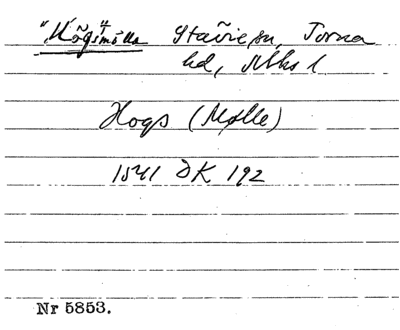 "Högsmölla" Stävie sn, Torna
hd, Mhs l
Hogs (Mølle)
1541 DK 192
Nr 5853.